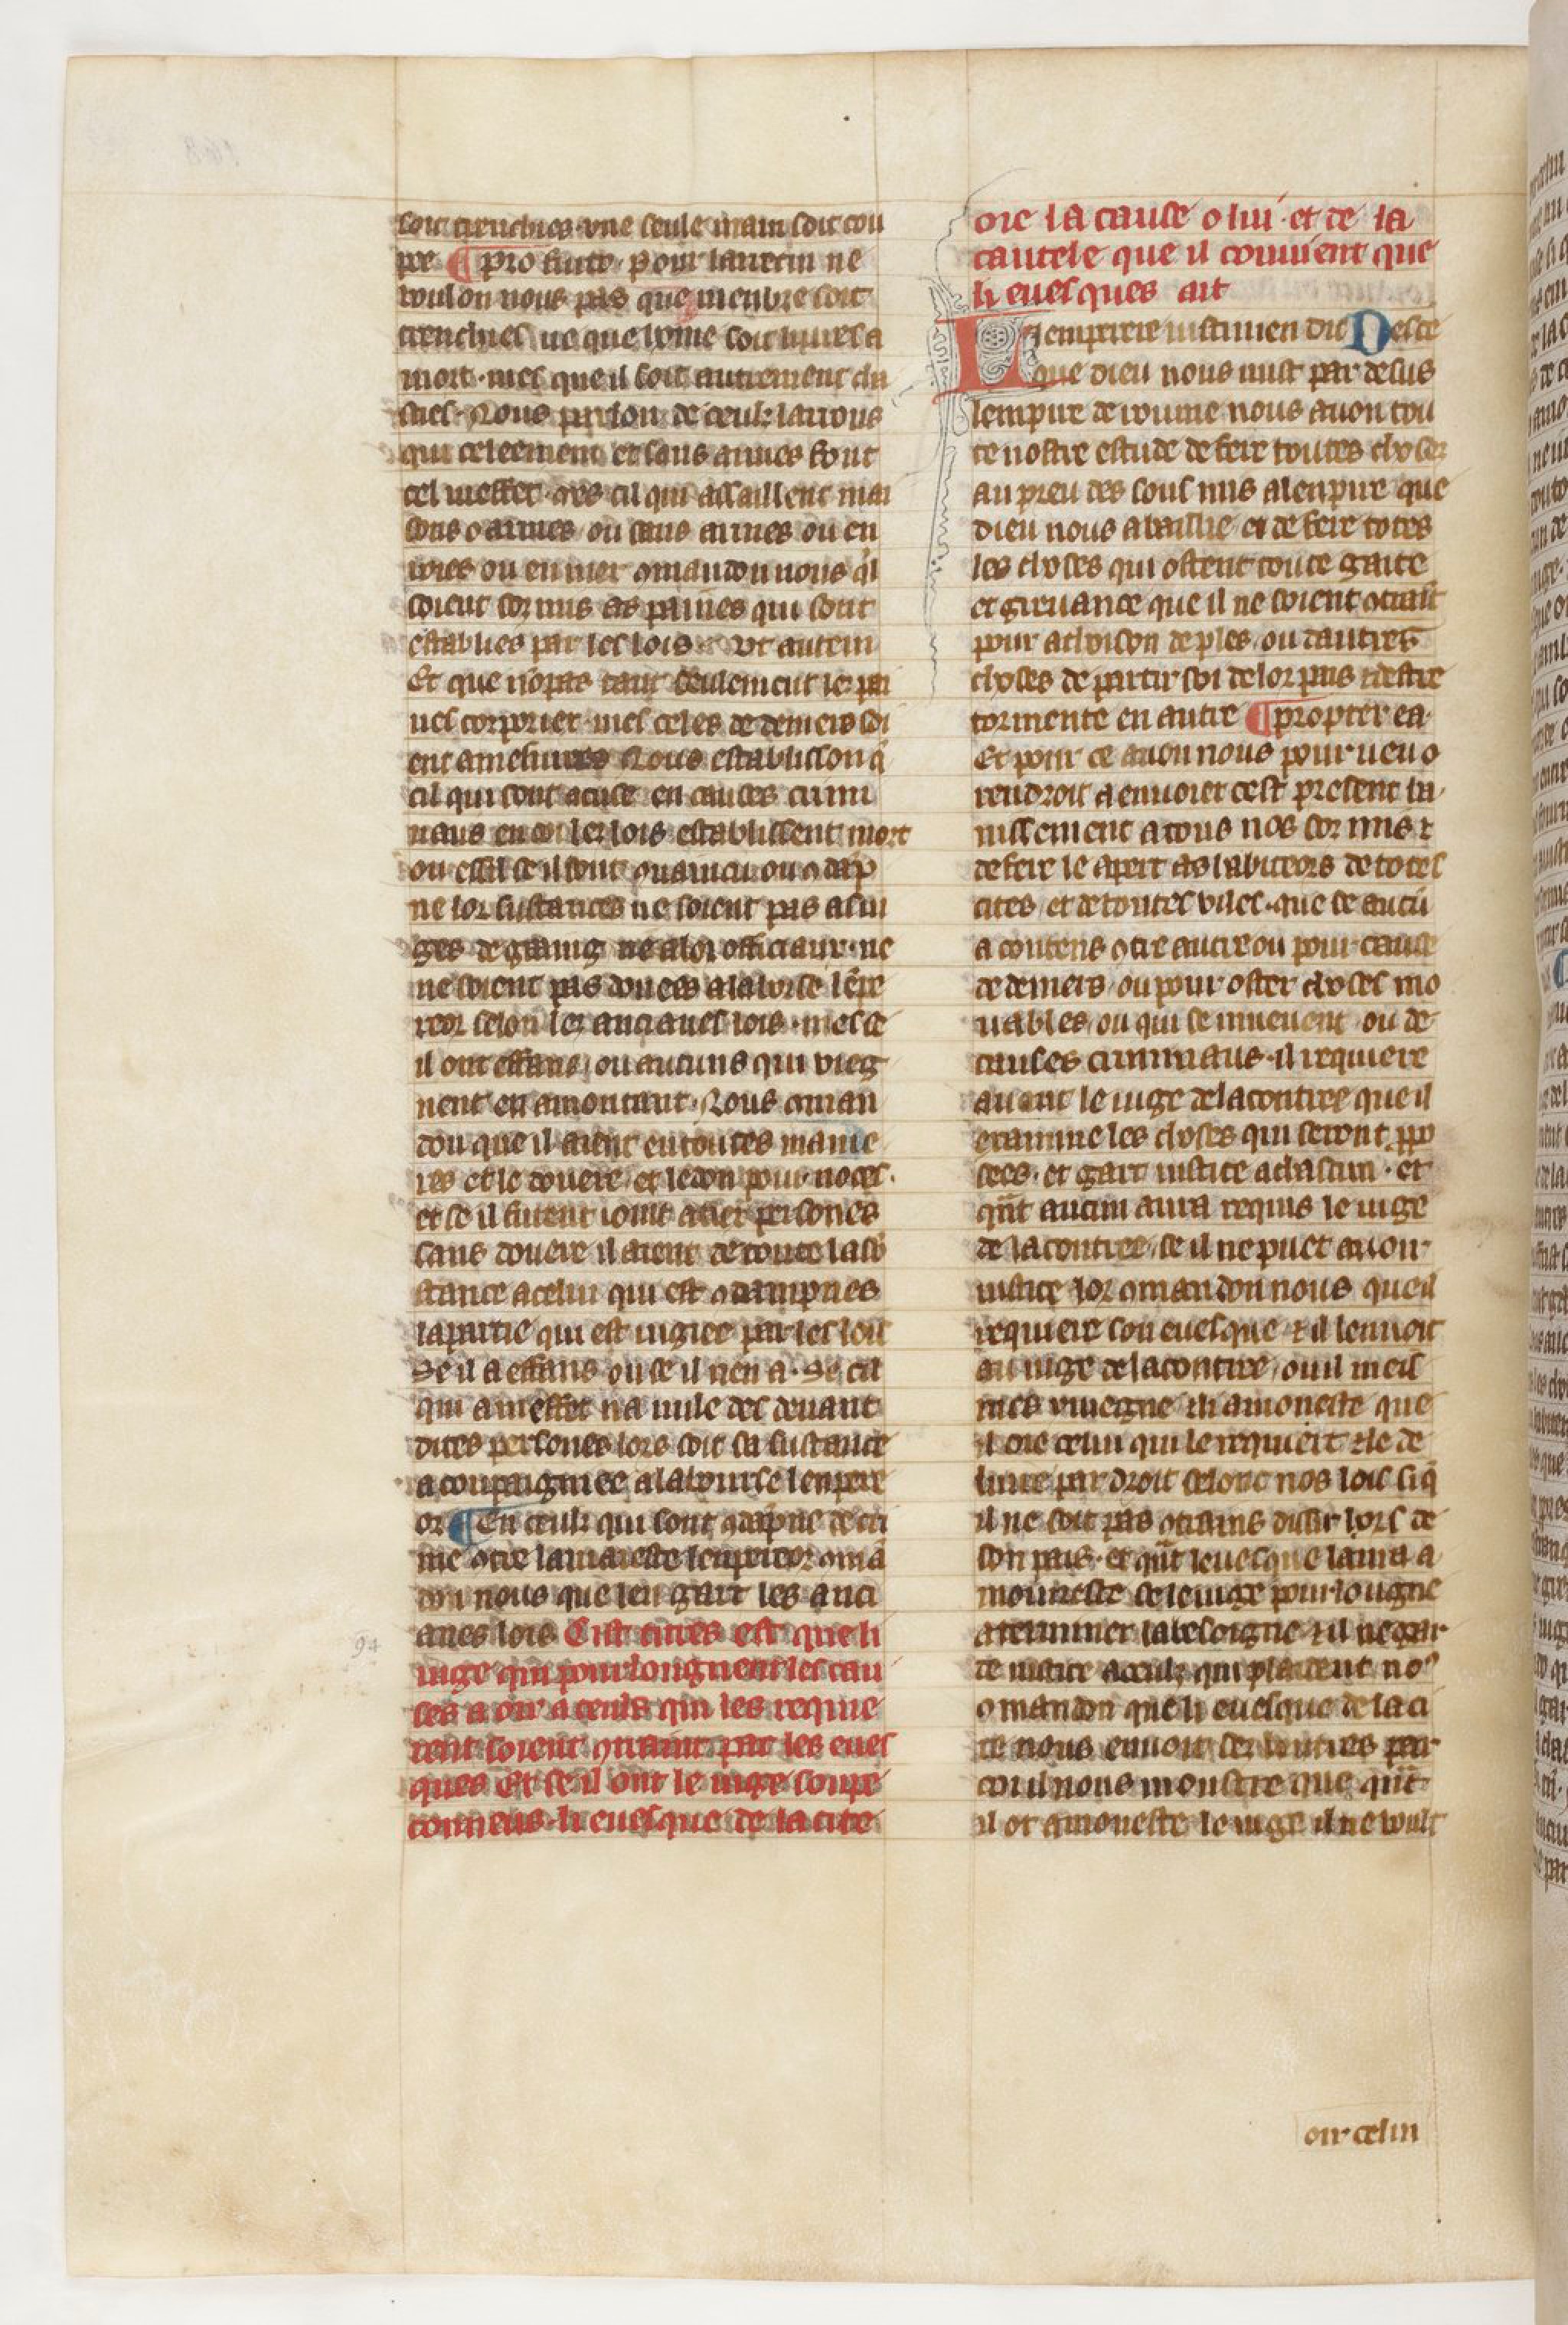 soit trenchies vne seule main soit cou
pe ¶ pro furto pour larrecin ne
volon nous pas que menbre soit
trenchies ne que lome soit liures a
mort mes que il soit autrement cha
sties. Nous parlon de ceulz larrons
qui celeement et sans armes font
cel meffet mes cil qui assaillent mai
sons o armes ou sans armes ou en
voies ou en mer 9mandon nous qͥl
soient souzmis as paines qui sont
establies par les lois. Vt autem
Et que nō pas tant seulement les pai
nes corporier mes celes de deniers soi
ent amesurees Nous establisson q̄
cil qui sont acuse en causes crimi
naus en coi les lois establissent mort
ou essil se il sont 9uaincu ou 9dāp
ne lor sustances ne soient pas as iu
ges degaaing ne a lor officiaux ne
ne soient pas donees a la borse lēpe
reor selon les anciaues lois mes se
il ont effans ou aucuns qui vieg
nent en amontant. Nous 9man
don que il aient en toutes manie
res et le douere et le don pour noces.
et se il furent ioint a tiex persones
sans douere il aient de toute la sb
stance a celui qui est 9dampnes
la partie qui est iugiee par les lois
Se il a effans ou se il nen a. Se cil
qui a meffet na nule des deuant
dites persones lors soit sa sustance
acompaigniee a la bourse lenpere
or ¶ En ceulz qui sont 9dāpne de cri
me 9tre la maieste lenpereor 9mā
don nous que len gart les anci
anes lois Cist titres est que li
iuge qui pourlonguent les cau
ses a oir a ceuls qui les requie
rent soient 9traint par les eues
ques Et se il ont le iuge soupe
conneus li euesque de la cite
oie la cause o lui et de la
cautele que il couuient que
li euesques ait
L Lemperere iustinien dit Desce
que dieu nous mist par desus
lempire de roume nous auon tou
te nostre estude de fere toutes choses
au preu des sous mis a lenpire que
dieu nous a baillie et de fere totes
les choses qui ostent toute gaite
et greuance que il ne soient 9traīt
pour achoison de ples ou dautres
choses de partir soi de lor pais destre
tormente en autre ¶ propter ea.
Et pour ce auon nous pourueu o
rendroit a enuoier cest present ba
nissement a tous nos sozmis ⁊
de fere le apert as labiteors de totes
cites et de toutes viles que se aucū
a contens 9tre autre ou pour cause
de deniers ou pour oster choses mo
uables ou qui se mueuent ou de
causes criminaus il requiere
auant le iuge de la contree que il
examine les choses qui seront ꝓpo
sees. et gart iustice a chascun. et
qn̄t aucun aura requis le iuge
de la contree se il ne puet auoir
iustice lor 9mandon nous que il
requiere son euesque ⁊ il lenuoit
au iuge de la contree ou il meis
mes viuegne ⁊ li amoneste que
il oie celui qui le requiert ⁊ le de
liure par droit selonc nos lois si q̄
il ne soit pas 9trains dissir hors de
son pais. et qn̄t leuesque laura a
monneste se le iuge pourlougne
a terminer la besoigne ⁊ il ne gar
de iustice a ceulz qui pladent no9
9mandon que li euesque de la ci
te nous enuoit ses letres par
coi il nous monstre que qn̄t
il ot amoneste le iuge il ne voult
oir celui
94